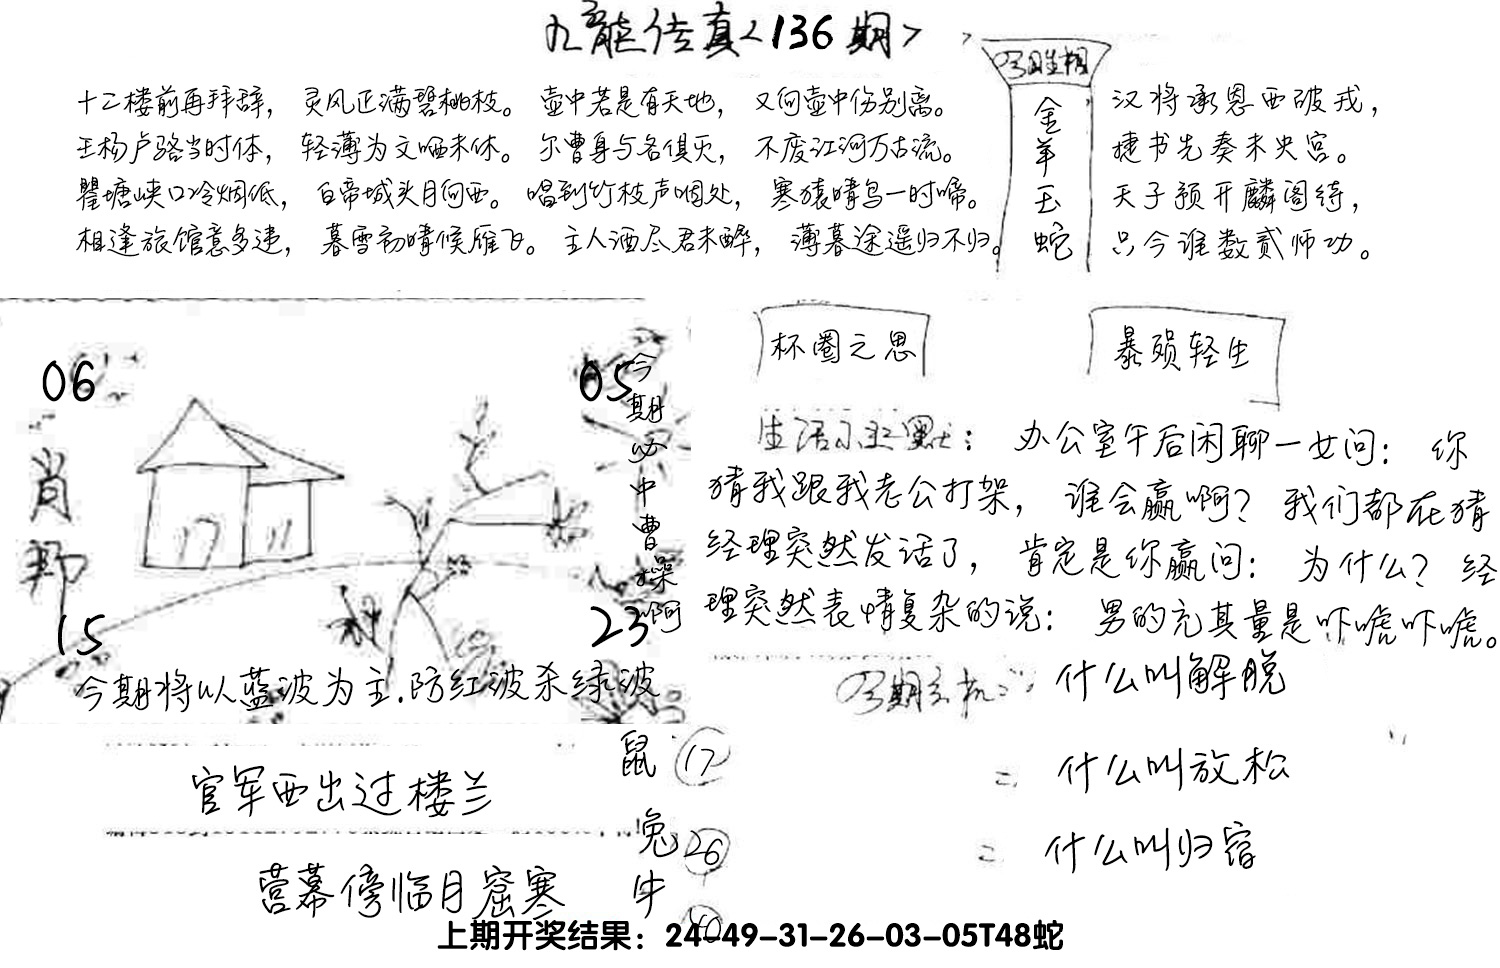 九龙传真<136期>
十二楼前再拜辞，灵风正满碧桃枝。壶中若是有天地，又向壶中伤别离。
王杨卢骆当时体，轻薄为文哂未休。尔曹身与名俱灭，不废江河万古流。
瞿塘峡口冷烟低，白帝城头月向西。唱到竹枝声咽处，寒猿晴鸟一时啼。
相逢旅馆意多违，暮雪初晴候雁飞。主人酒尽君未醉，薄暮途遥归不归。
金羊玉蛇
汉将承恩西破戎，
捷书先奏未央宫。
天子预开麟阁待，
只今谁数贰师功。
06
05
肖
15
23
今期必中曹操啊
今期将以蓝波为主.防红波杀绿波
杯圈之思
暴殒轻生
生活小幽默：办公室午后闲聊一女问：你
猜我跟我老公打架，谁会赢啊？我们都在猜
经理突然发话了，肯定是你赢问：为什么？经
理突然表情复杂的说：男的充其量是吓唬吓唬。
今期玄机：什么叫解脱
= 什么叫放松
= 什么叫归宿
官军西出过楼兰
营幕傍临月窟寒
鼠 17
兔 26
牛 40
上期开奖结果：24-49-31-26-03-05T48蛇